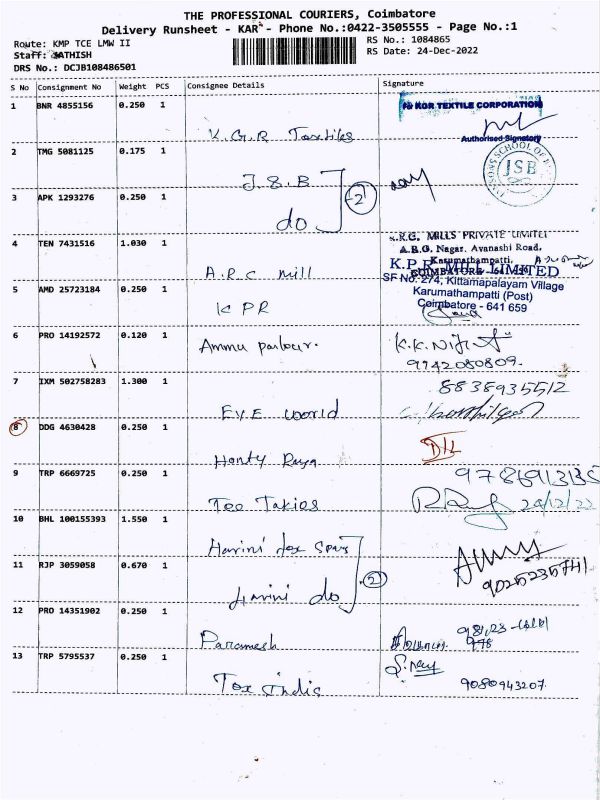 THE PROFESSIONAL COURIERS, Coimbatore
Delivery Runsheet - KAR - Phone No.:0422-3505555 - Page No.:1
Route: KMP TCE LMW II
RS No.: 1084865
Staff: SATHISH
RS Date: 24-Dec-2022
DRS No.: DCJB108486501
S No Consignment No Weight PCS Consignee Details Signature
1 BNR 4855156 0.250 1
KGR TEXTILE CORPORATION
K.G.R Textiles
Authorised Signatory
2 TMG 5081125 0.175 1
J.S.B
2
JSB
3 APK 1293276 0.250 1
do
4 TEN 7431516 1.030 1
MILLS PRIVATE LIMITED
A.R.G. Nagar, Avanashi Road,
Karumathampatti,
A.R.C mill
K.P.R. MILL LIMITED
5 AMD 25723184 0.250 1
SF No. 274, Kittampalayam Village
Karumathampatti (Post)
Coimbatore - 641 659
K P R
6 PRO 14192572 0.120 1
Ammu parlour.
9942080809.
7 IXM 502758283 1.300 1
8838935512
EVE world
8 DDG 4630428 0.250 1
9 TRP 6669725 0.250 1
Tex
24/12/22
10 BHL 100155393 1.550 1
Harini tex
11 RJP 3059058 0.670 1
2
9025235741
Harini do
12 PRO 14351902 0.250 1
Paramesh
13 TRP 5795537 0.250 1
9080943207.
Tex India